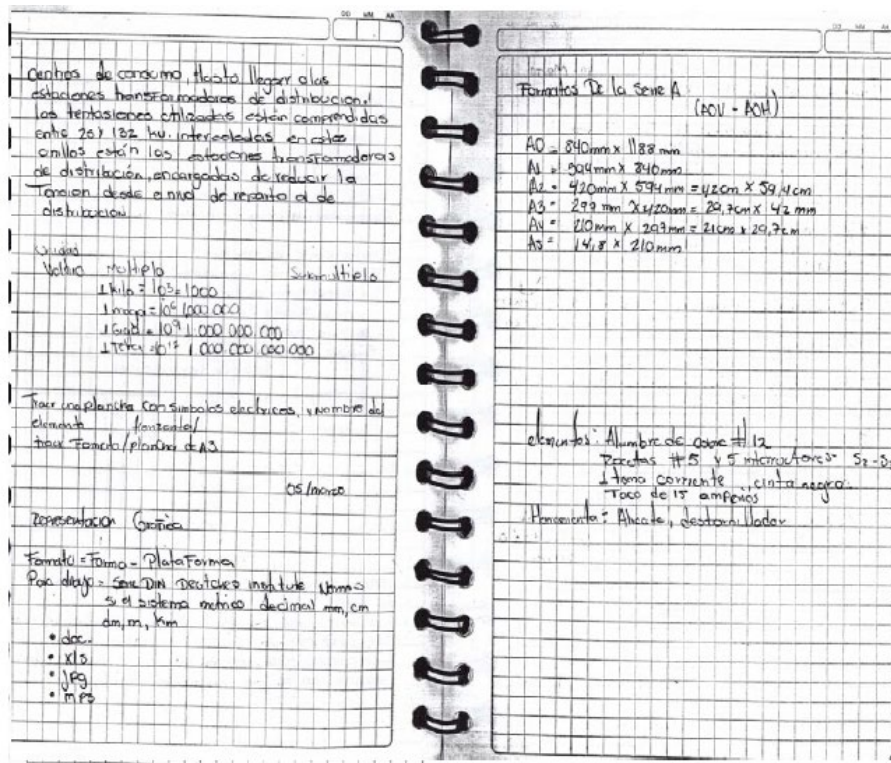 DD MM AA
centros de consumo, Hasta llegar a las
estaciones transformadoras de distribucion.
las tentasiones utilizadas están comprendidas
entre 26 y 132 kv. intercaladas en estos
anillos están las estaciones transformadoras
de distribución, encargadas de reducir la
Tencion desde el nivel de reparto al de
distribucion.
Unidad
Voltio Multiplo Submultiplo
1 kilo = 10³ = 1000
1 mega = 10⁶ 1000.000
1 Giga = 10⁹ 1.000 000.000
1 Tera = 10¹² 1 000.000.000.000
Traer una plancha con simbolos electricos, y nombre del
elemento
traer Formato/plancha de A3
05/marzo
Representacion Grafica
Formato = Forma - PlataForma
Para dibujo = Serie DIN Deutches institute Norms
si el sistema metrico decimal mm, cm
dm, m, km
• doc.
• xls
• jpg
• mp3
DD MM AA
Formatos De la Serie A
(AOV - AOH)
A0 = 840mm x 1188 mm
A1 = 594mm x 840mm
A2 = 420mm x 594mm = 42cm x 59,4cm
A3 = 297 mm x 420mm = 29,7cm x 42 mm
A4 = 210mm x 297mm = 21cm x 29,7cm
A5 = 14,8 x 210mm
elementos: Alumbre de cobre # 12
Rocetas # 5 y 5 interructores S2-S
1 toma corriente, cinta negra.
Taco de 15 amperios
Herramienta: Alicate, destornillador